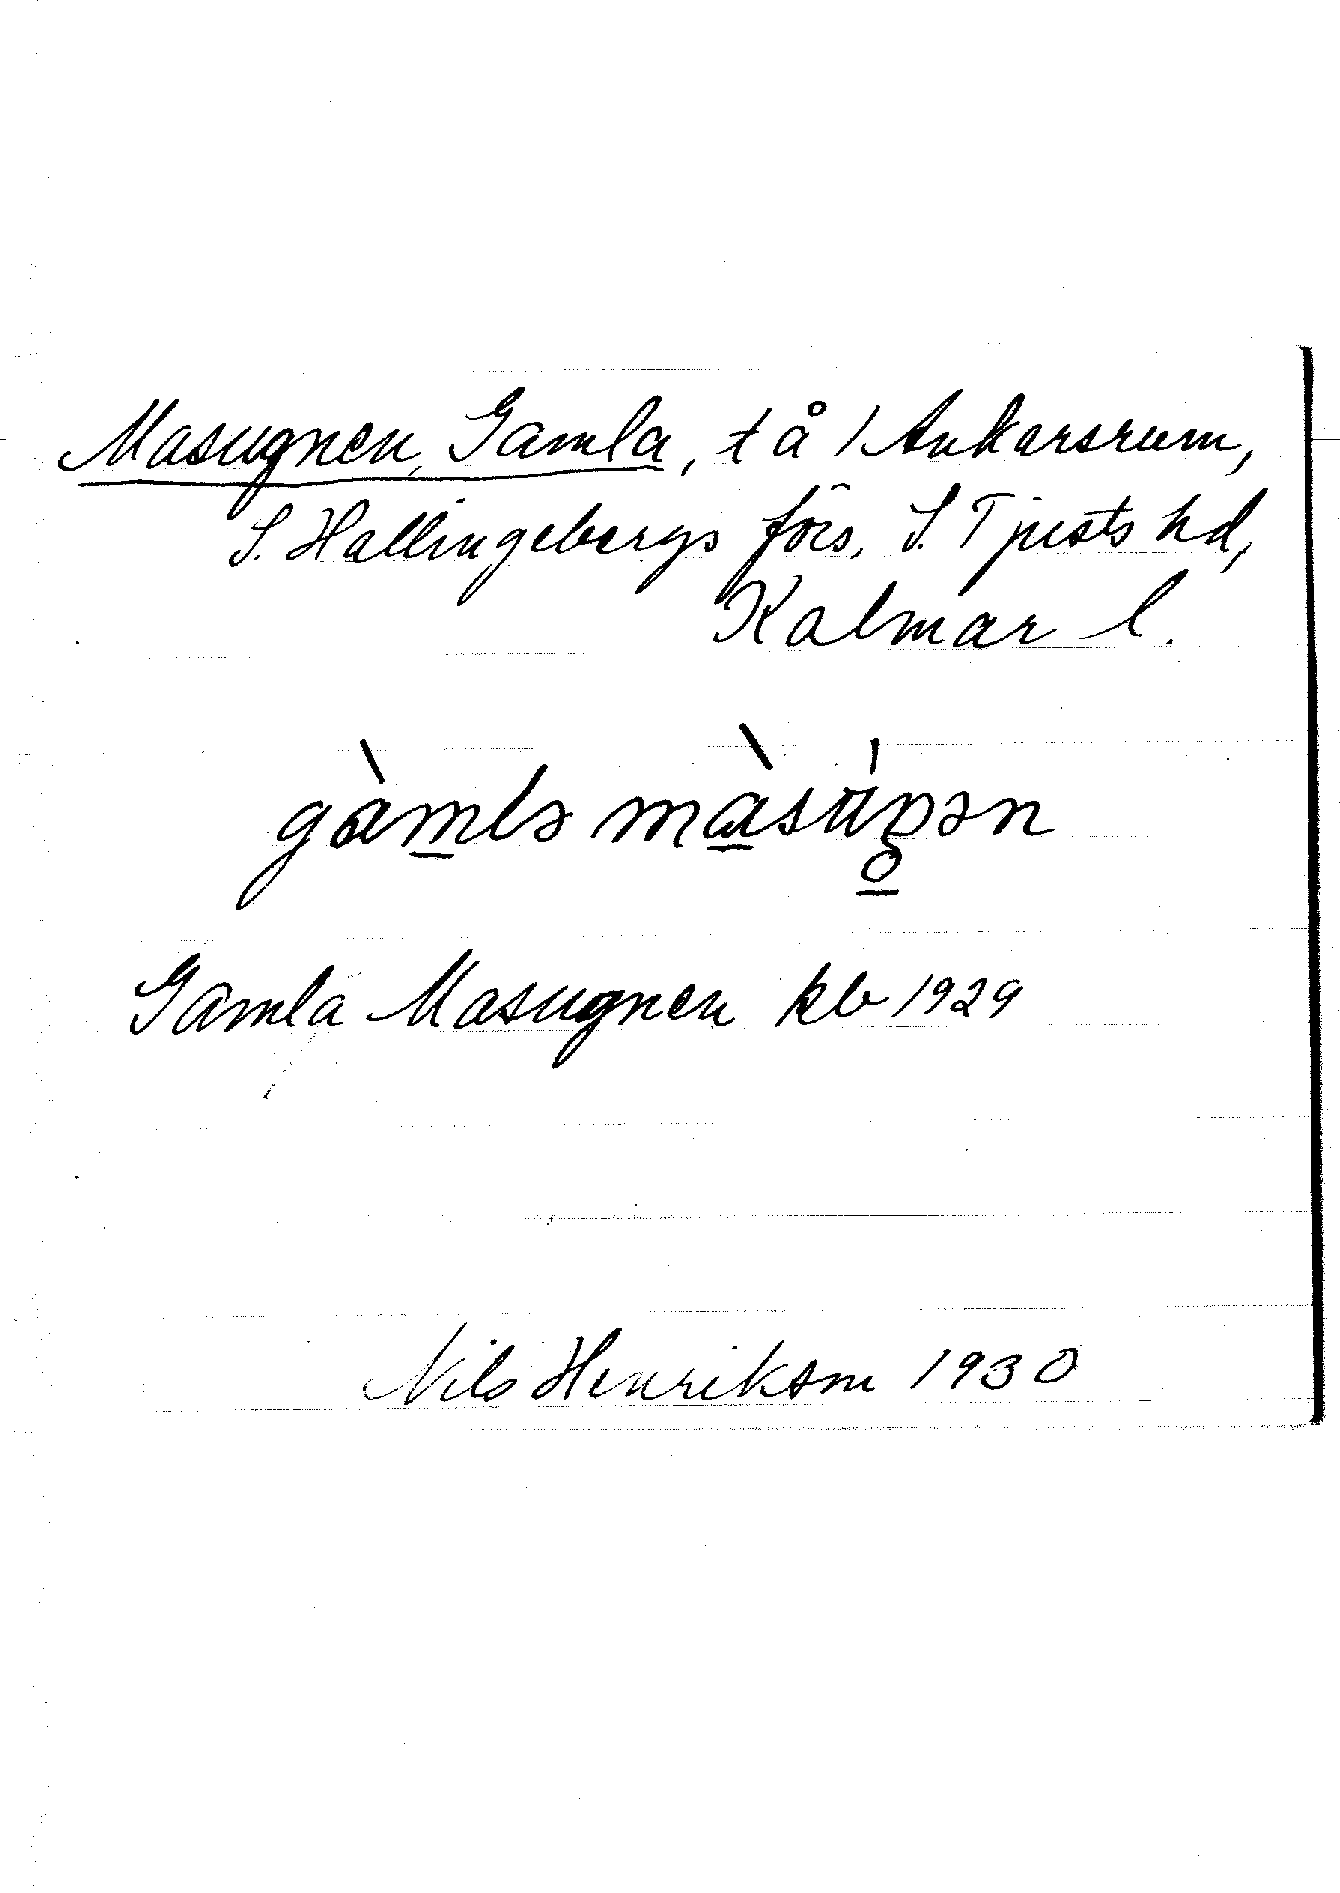 Masugnen, Gamla, t å 1 Ankarsrum,
S. Hallingebergs förs, S. Tjusts hd,
Kalmar l.
gàmlə màsuŋən
Gamla Masugnen kb 1929
Nils Henrikson 1930